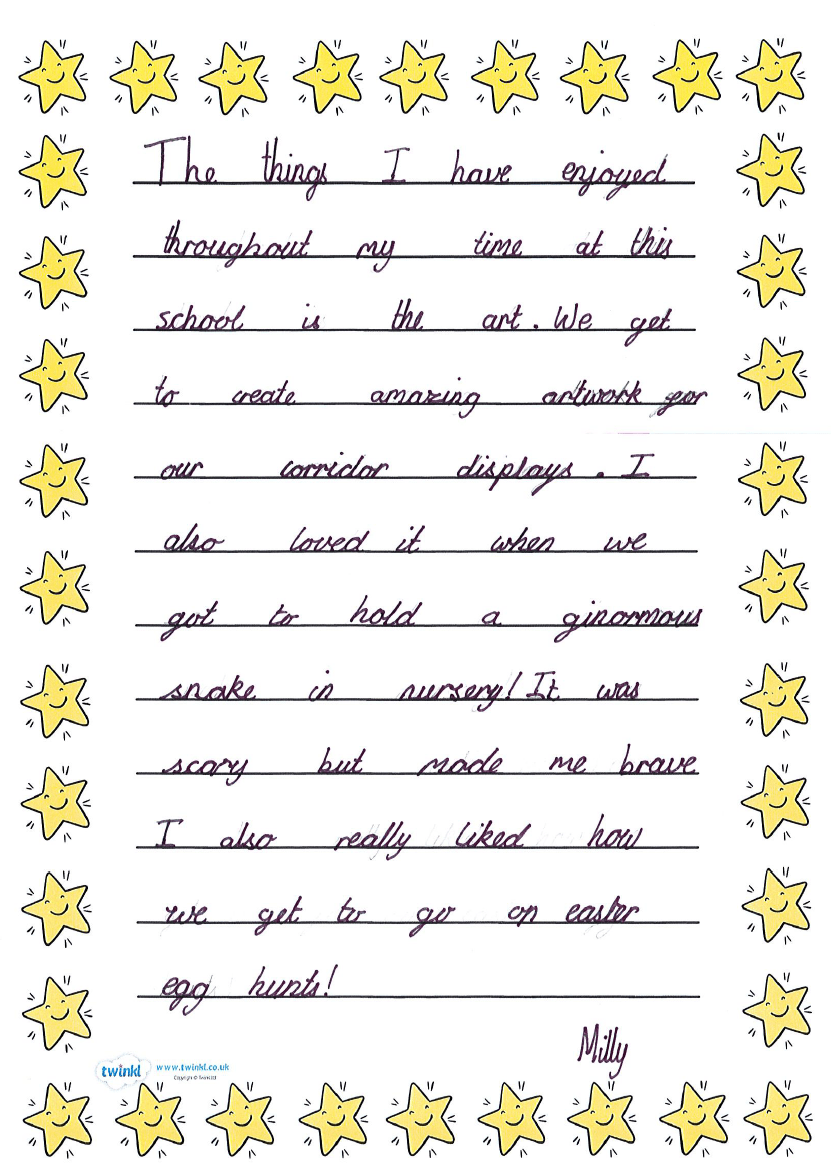 The things I have enjoyed
throughout my time at this
school is the art. We get
to create amazing artwork for
our corridor displays. I
also loved it when we
got to hold a ginormous
snake in nursery! It was
scary but made me brave
I also really liked how
we get to go on easter
egg hunts!
Milly
twinkl www.twinkl.co.uk
Copyright © Twinkl Ltd